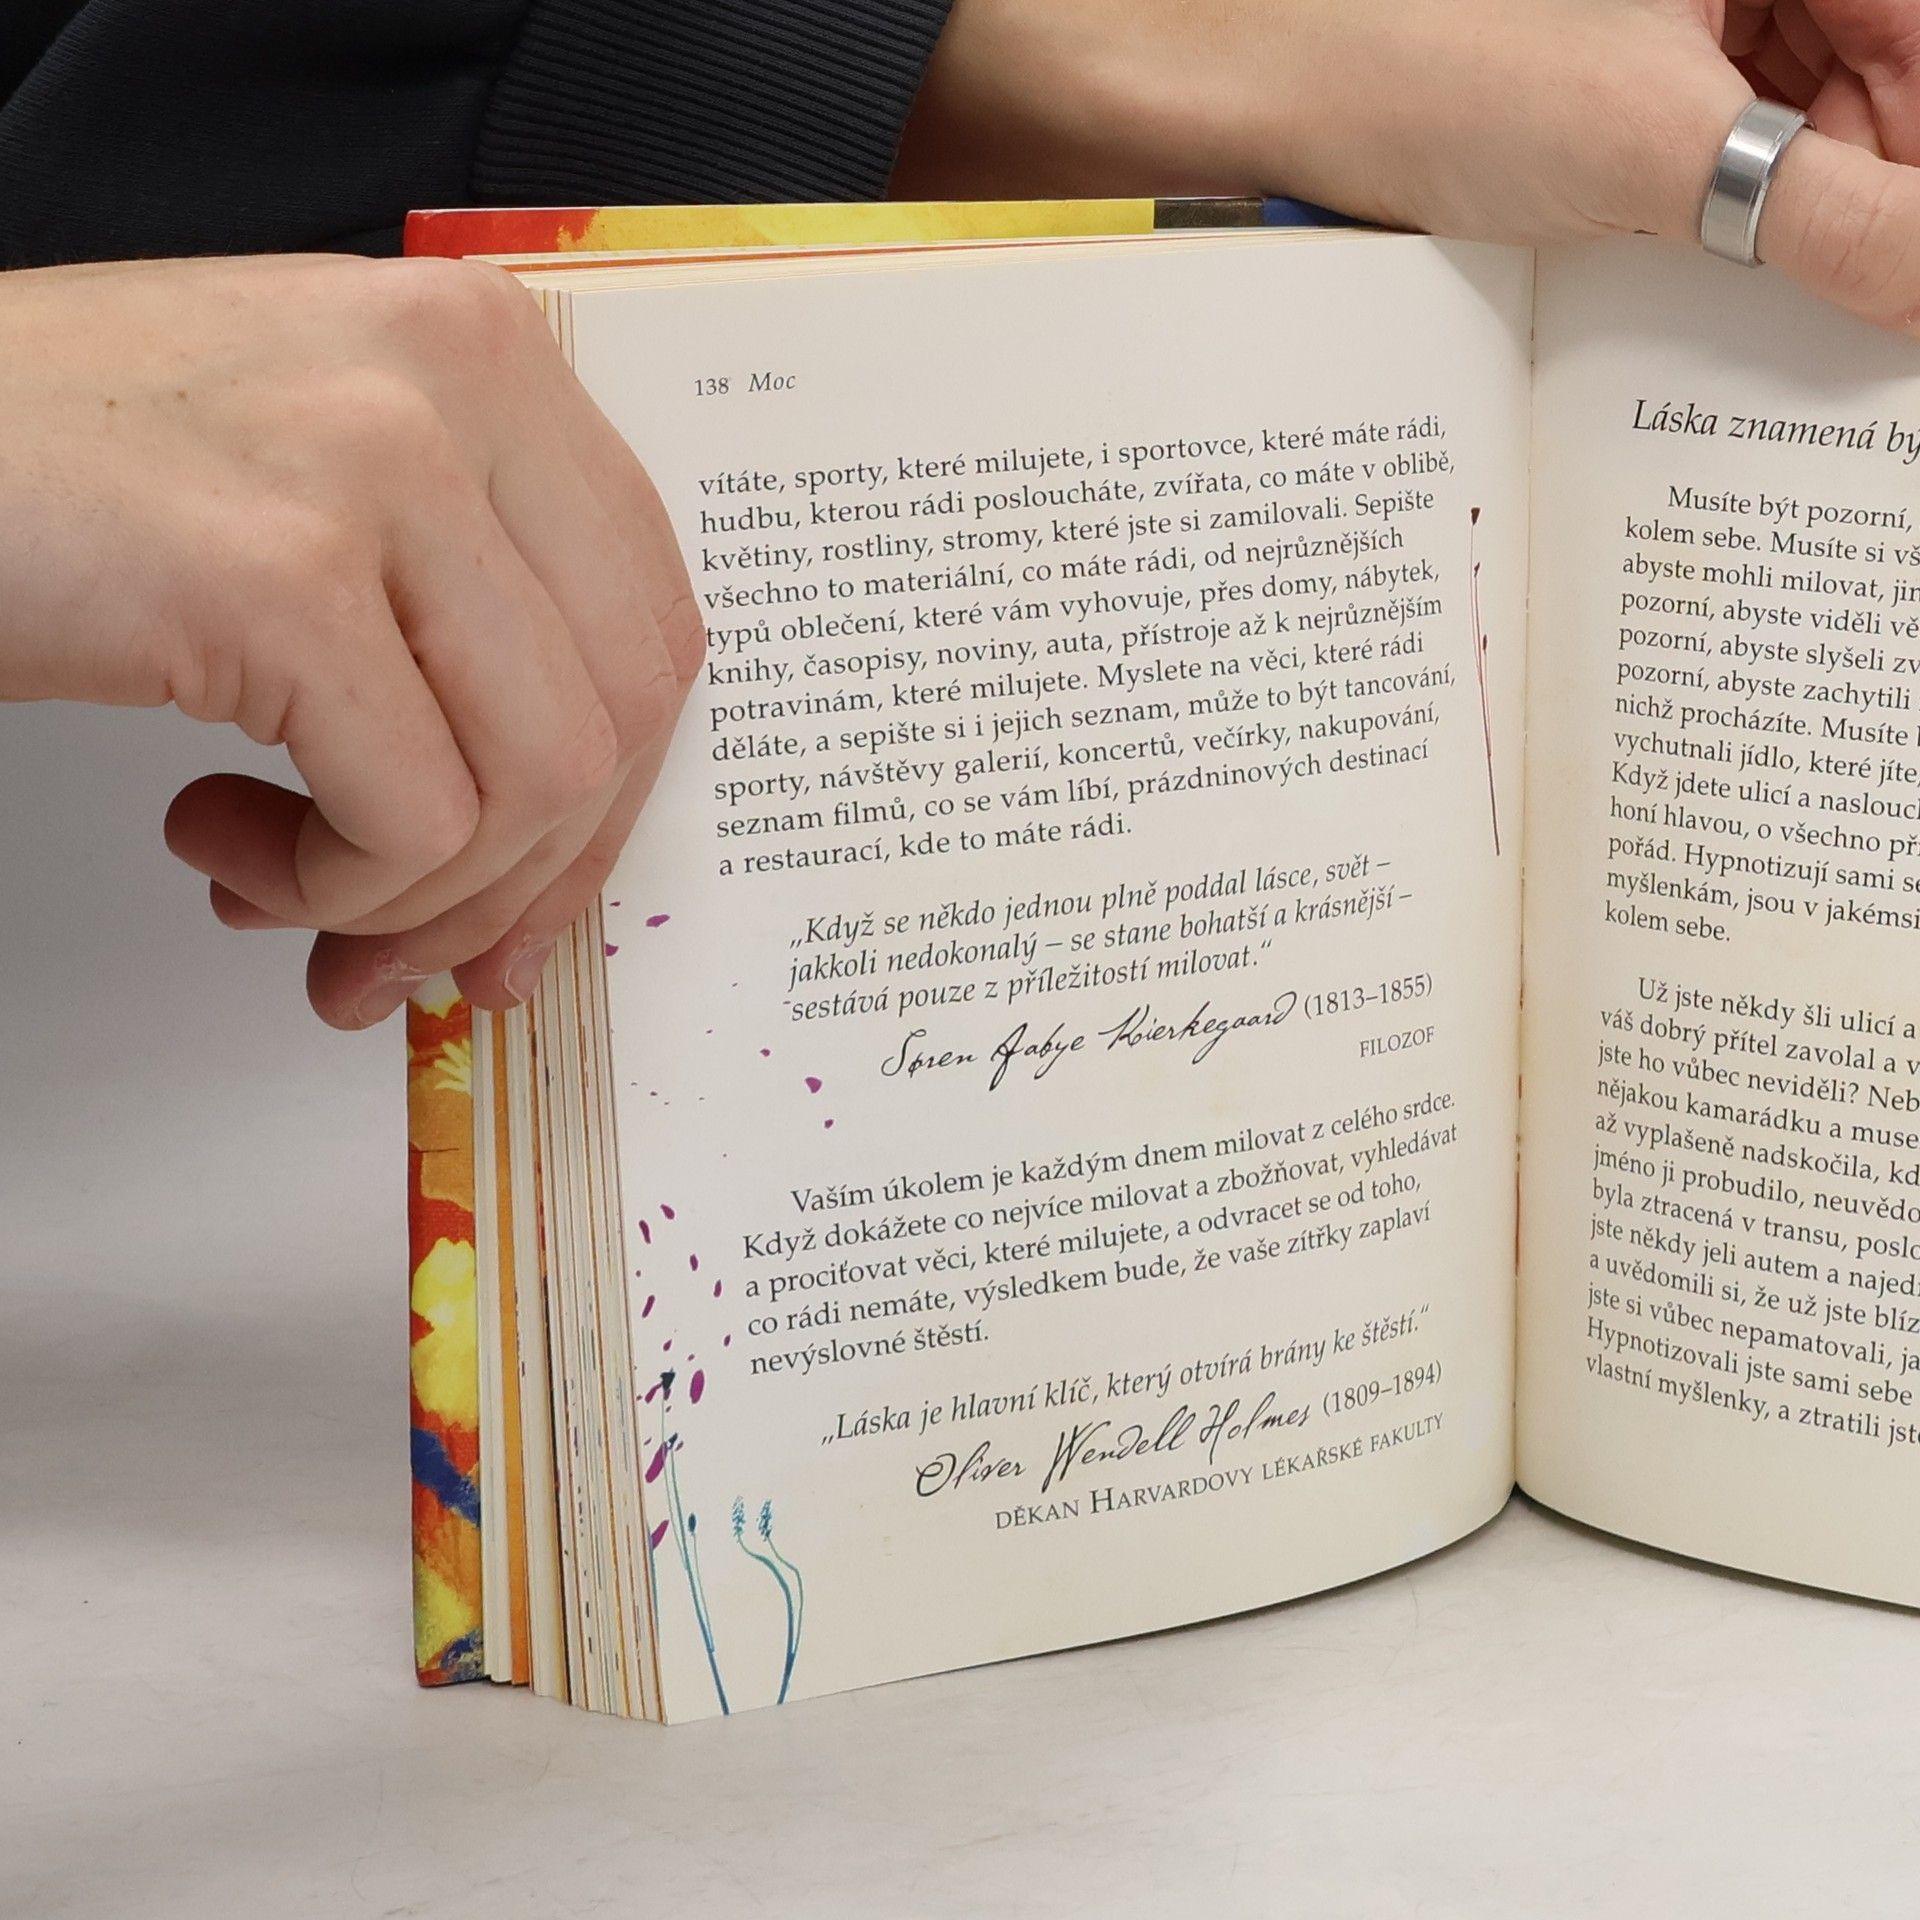 138 Moc
vítáte, sporty, které milujete, i sportovce, které máte rádi,
hudbu, kterou rádi posloucháte, zvířata, co máte v oblibě,
květiny, rostliny, stromy, které jste si zamilovali. Sepište
všechno to materiální, co máte rádi, od nejrůznějších
typů oblečení, které vám vyhovuje, přes domy, nábytek,
knihy, časopisy, noviny, auta, přístroje až k nejrůznějším
potravinám, které milujete. Myslete na věci, které rádi
děláte, a sepište si i jejich seznam, může to být tancování,
sporty, návštěvy galerií, koncertů, večírky, nakupování,
seznam filmů, co se vám líbí, prázdninových destinací
a restaurací, kde to máte rádi.
„Když se někdo jednou plně poddal lásce, svět –
jakkoli nedokonalý – se stane bohatší a krásnější –
sestává pouze z příležitostí milovat.“
Søren Aabye Kierkegaard (1813–1855)
FILOZOF
Vaším úkolem je každým dnem milovat z celého srdce.
Když dokážete co nejvíce milovat a zbožňovat, vyhledávat
a prociťovat věci, které milujete, a odvracet se od toho,
co rádi nemáte, výsledkem bude, že vaše zítřky zaplaví
nevýslovné štěstí.
„Láska je hlavní klíč, který otvírá brány ke štěstí.“
Oliver Wendell Holmes (1809–1894)
DĚKAN HARVARDOVY LÉKAŘSKÉ FAKULTY
Láska znamená bý
Musíte být pozorní,
kolem sebe. Musíte si vš
abyste mohli milovat, jin
pozorní, abyste viděli vě
pozorní, abyste slyšeli zv
pozorní, abyste zachytili
nichž procházíte. Musíte
vychutnali jídlo, které jíte,
Když jdete ulicí a naslouch
honí hlavou, o všechno při
pořád. Hypnotizují sami se
myšlenkám, jsou v jakémsi
kolem sebe.
Už jste někdy šli ulicí a
váš dobrý přítel zavolal a v
jste ho vůbec neviděli? Neb
nějakou kamarádku a muse
až vyplašeně nadskočila, kd
jméno ji probudilo, neuvědo
byla ztracená v transu, poslo
jste někdy jeli autem a najed
a uvědomili si, že už jste blíz
jste si vůbec nepamatovali, ja
Hypnotizovali jste sami sebe
vlastní myšlenky, a ztratili jste